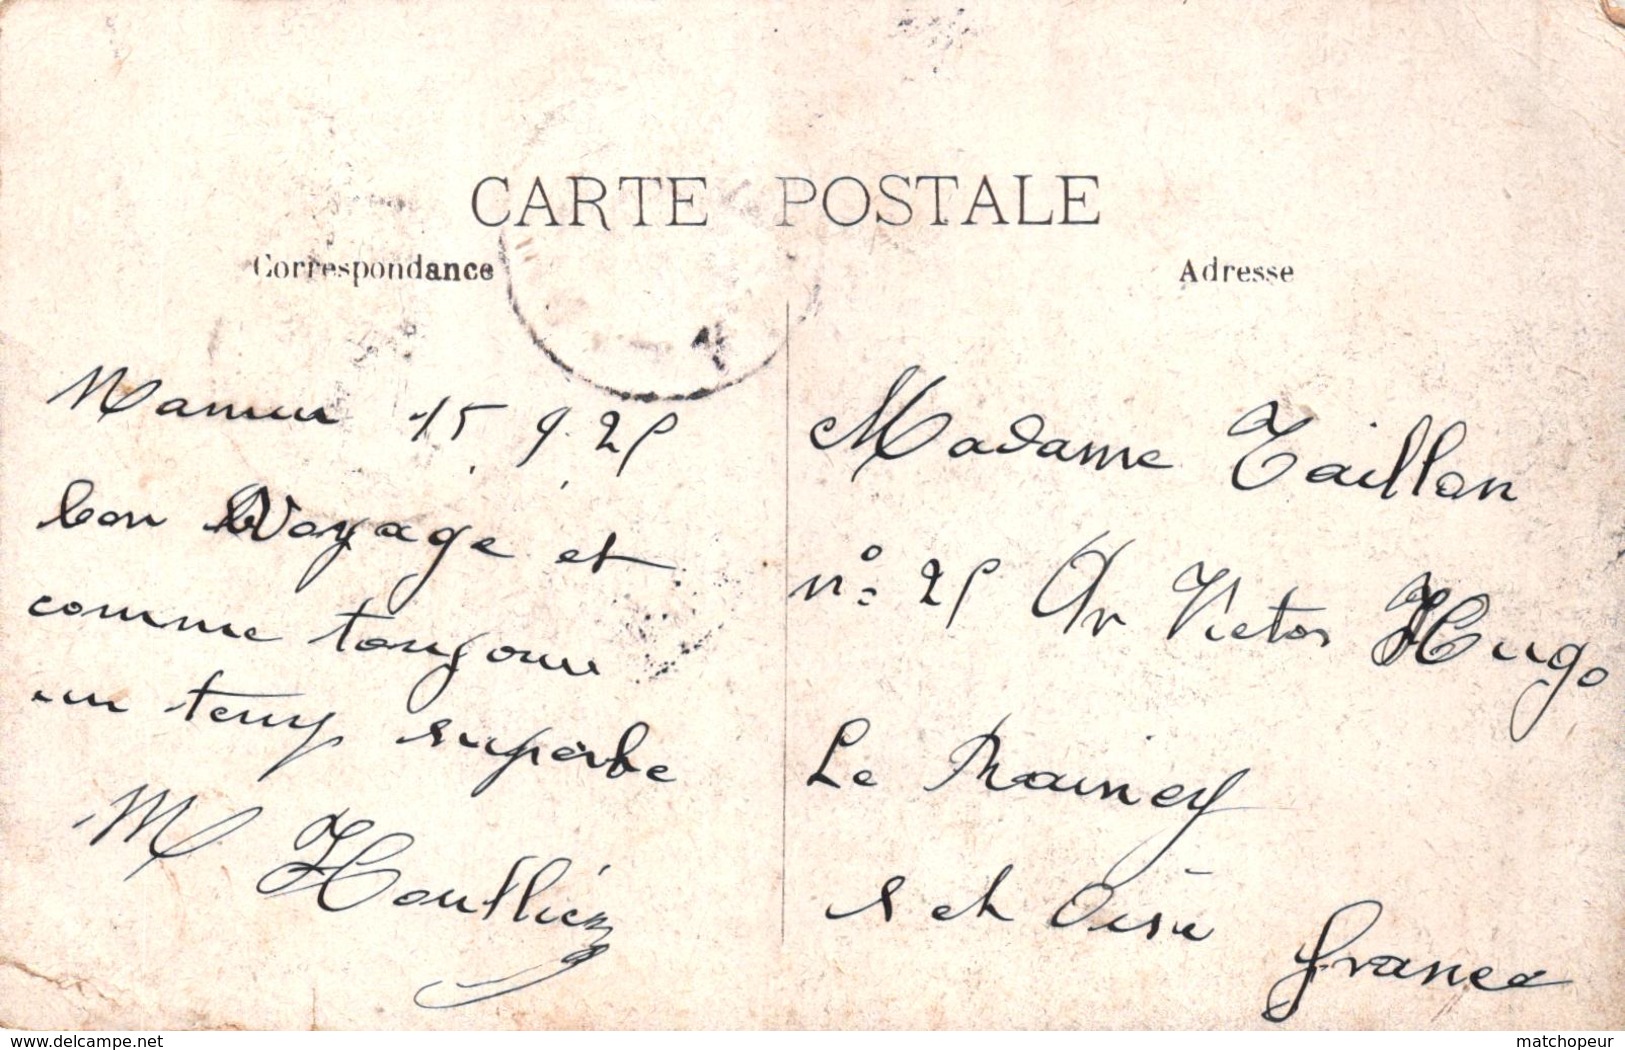 CARTE POSTALE
Correspondance
Adresse
Namur 15.9.25
bon Voyage et
comme toujours
un temps superbe
M Houlliez
Madame Taillon
n° 25 Av Victor Hugo
Le Raincy
S et Oise
France
delcampe.net
matchopeur